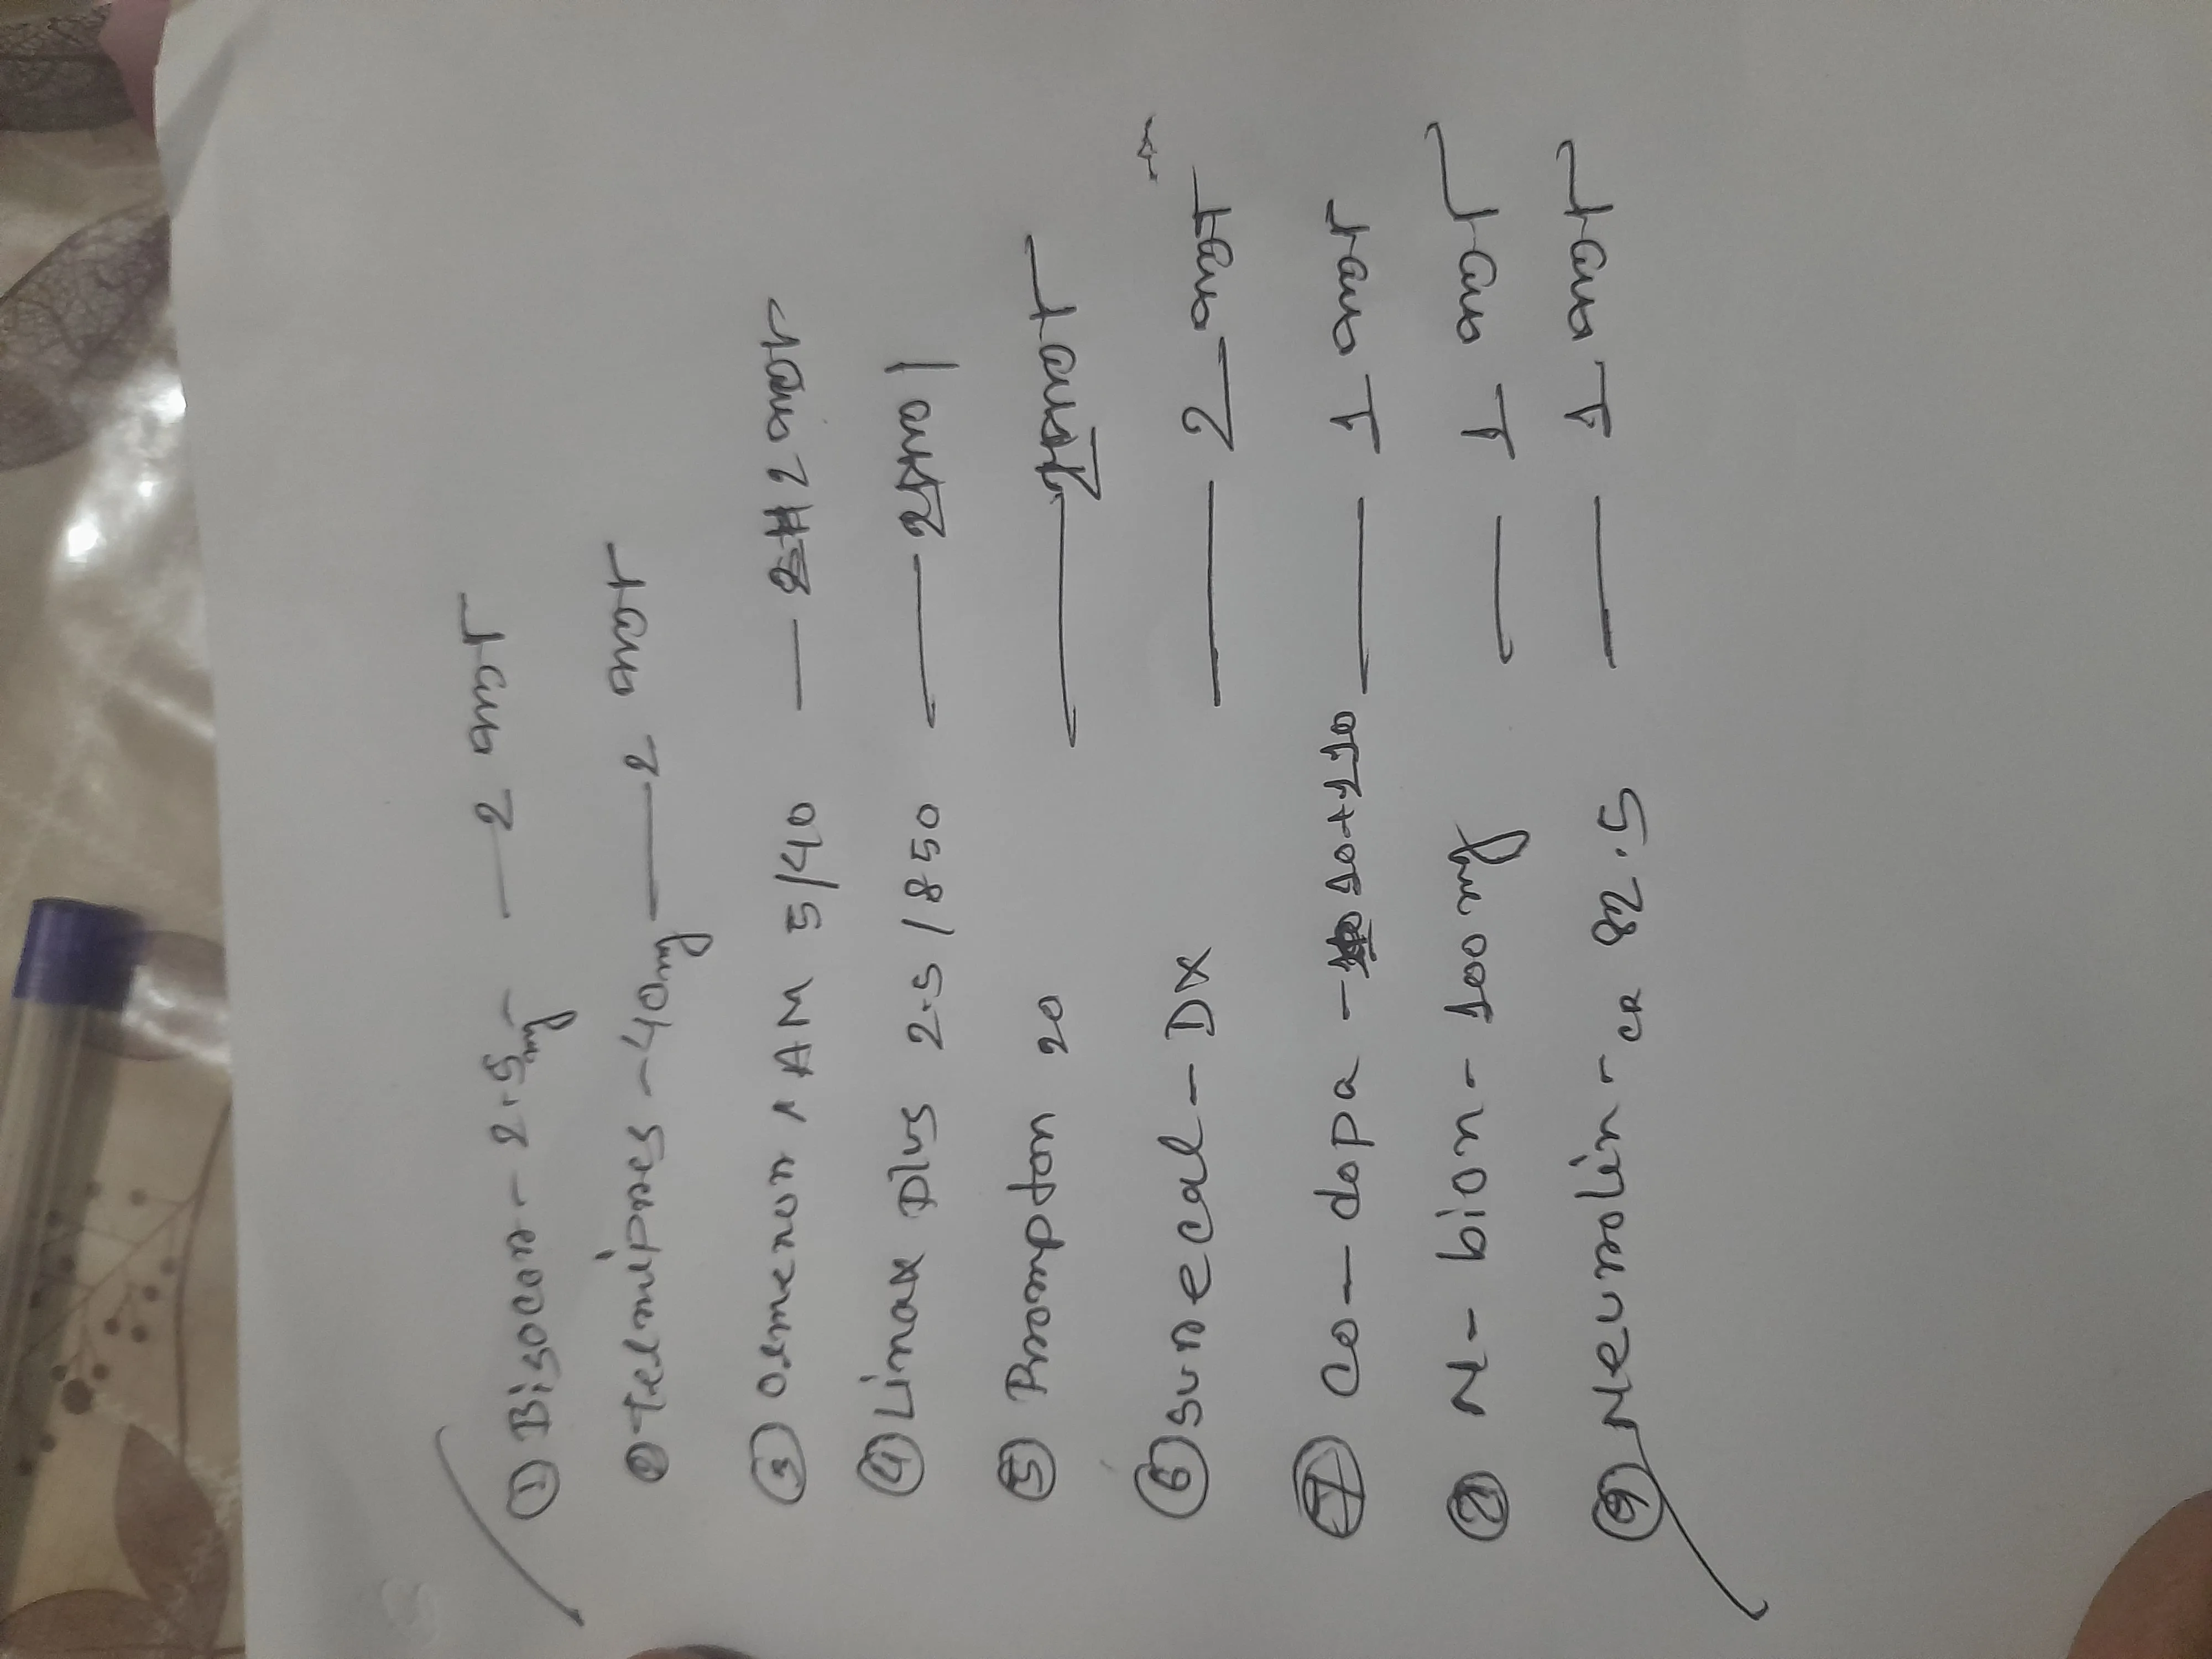 ① Bisocor - 2.5mg — 2 পাতা
② Telmipres - 40mg — 2 পাতা
③ Olmenor AM 5/40 — 2 পাতা
④ Linax Plus 2.5/850 — 2 পাতা
⑤ Prompton 20 — 2 পাতা
⑥ Surecal - DX — 2 পাতা
⑦ Co-dopa - 10+110 — 1 পাতা
N-bion - 100mg — 1 পাতা
⑨ Neurolin - CR 82.5 — 1 পাতা